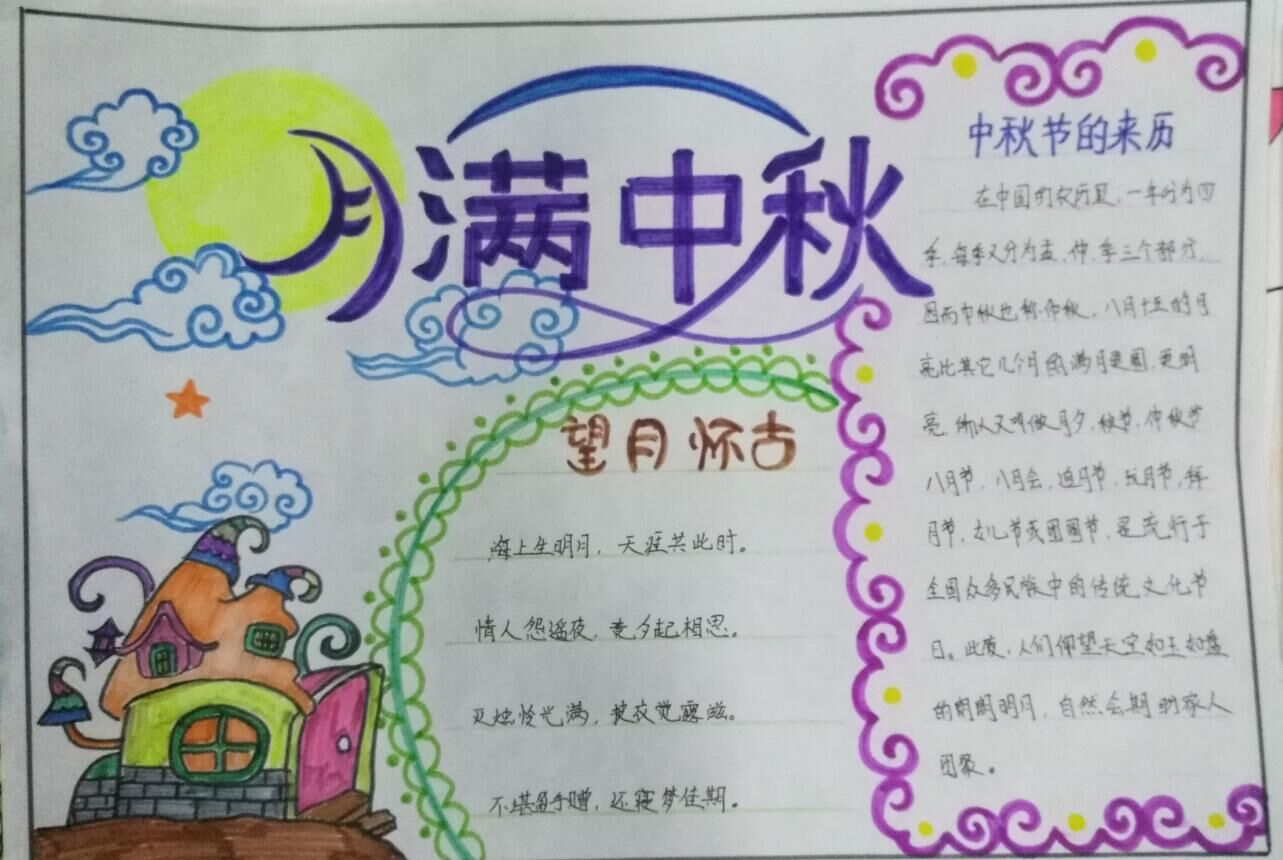 月满中秋
望月怀古
海上生明月，天涯共此时。
情人怨遥夜，竟夕起相思。
灭烛怜光满，披衣觉露滋。
不堪盈手赠，还寝梦佳期。
中秋节的来历
在中国的农历里，一年分为四
季，每季又分为孟、仲、季三个部分，
因而中秋也称仲秋。八月十五的月
亮比其它几个月的满月更圆，更明
亮，所以又叫做月夕，秋节，仲秋节
八月节，八月会，追月节，玩月节，拜
月节，女儿节或团圆节，是流行于
全国众多民族中的传统文化节
日。此夜，人们仰望天空如玉如盘
的朗朗明月，自然会期盼家人
团聚。